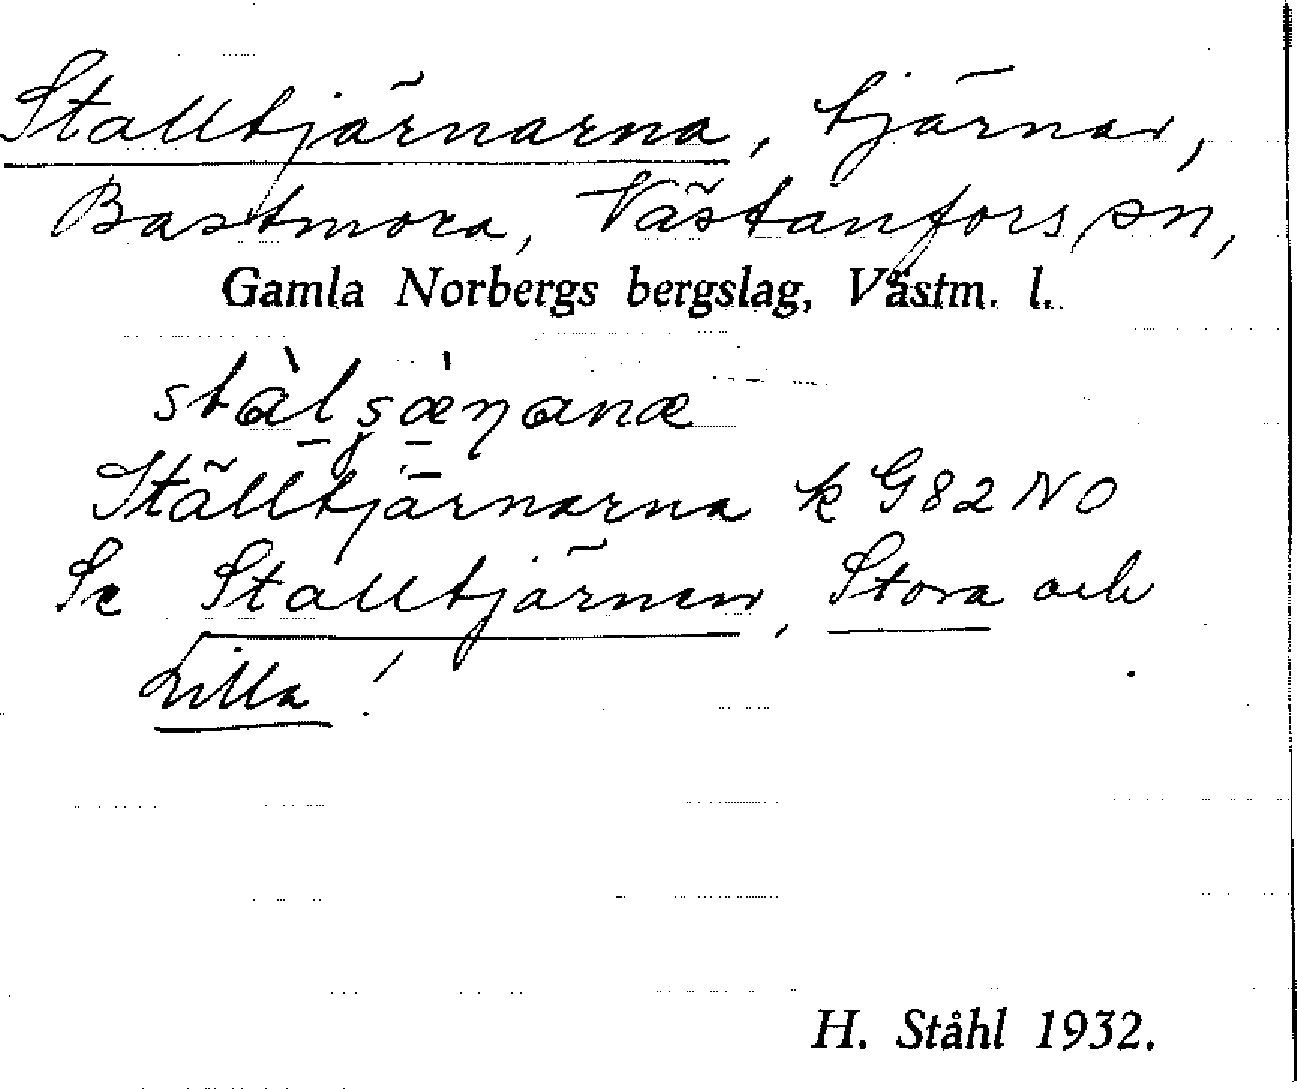 Stalltjärnarna, tjärnar,
Bastmora, Västanfors sn,
Gamla Norbergs bergslag, Västm. l.
Ställtjärnarna k G82 NO
Se Stalltjärnen, Stora och
Lilla!
H. Ståhl 1932.